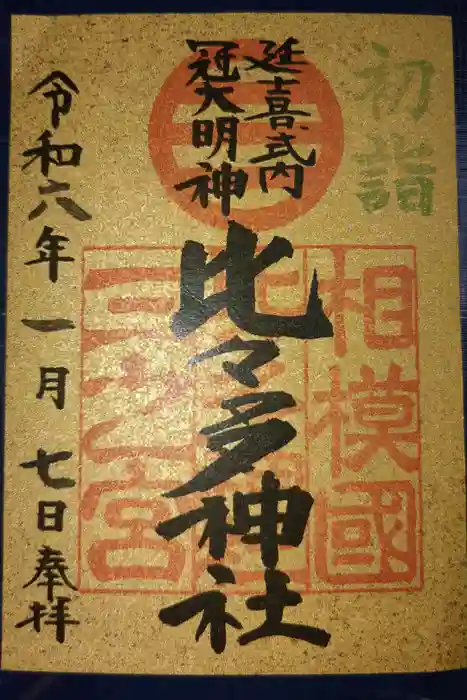 初詣
延喜式内
冠大明神
比々多神社
相模國
三之宮
令和六年一月七日奉拝